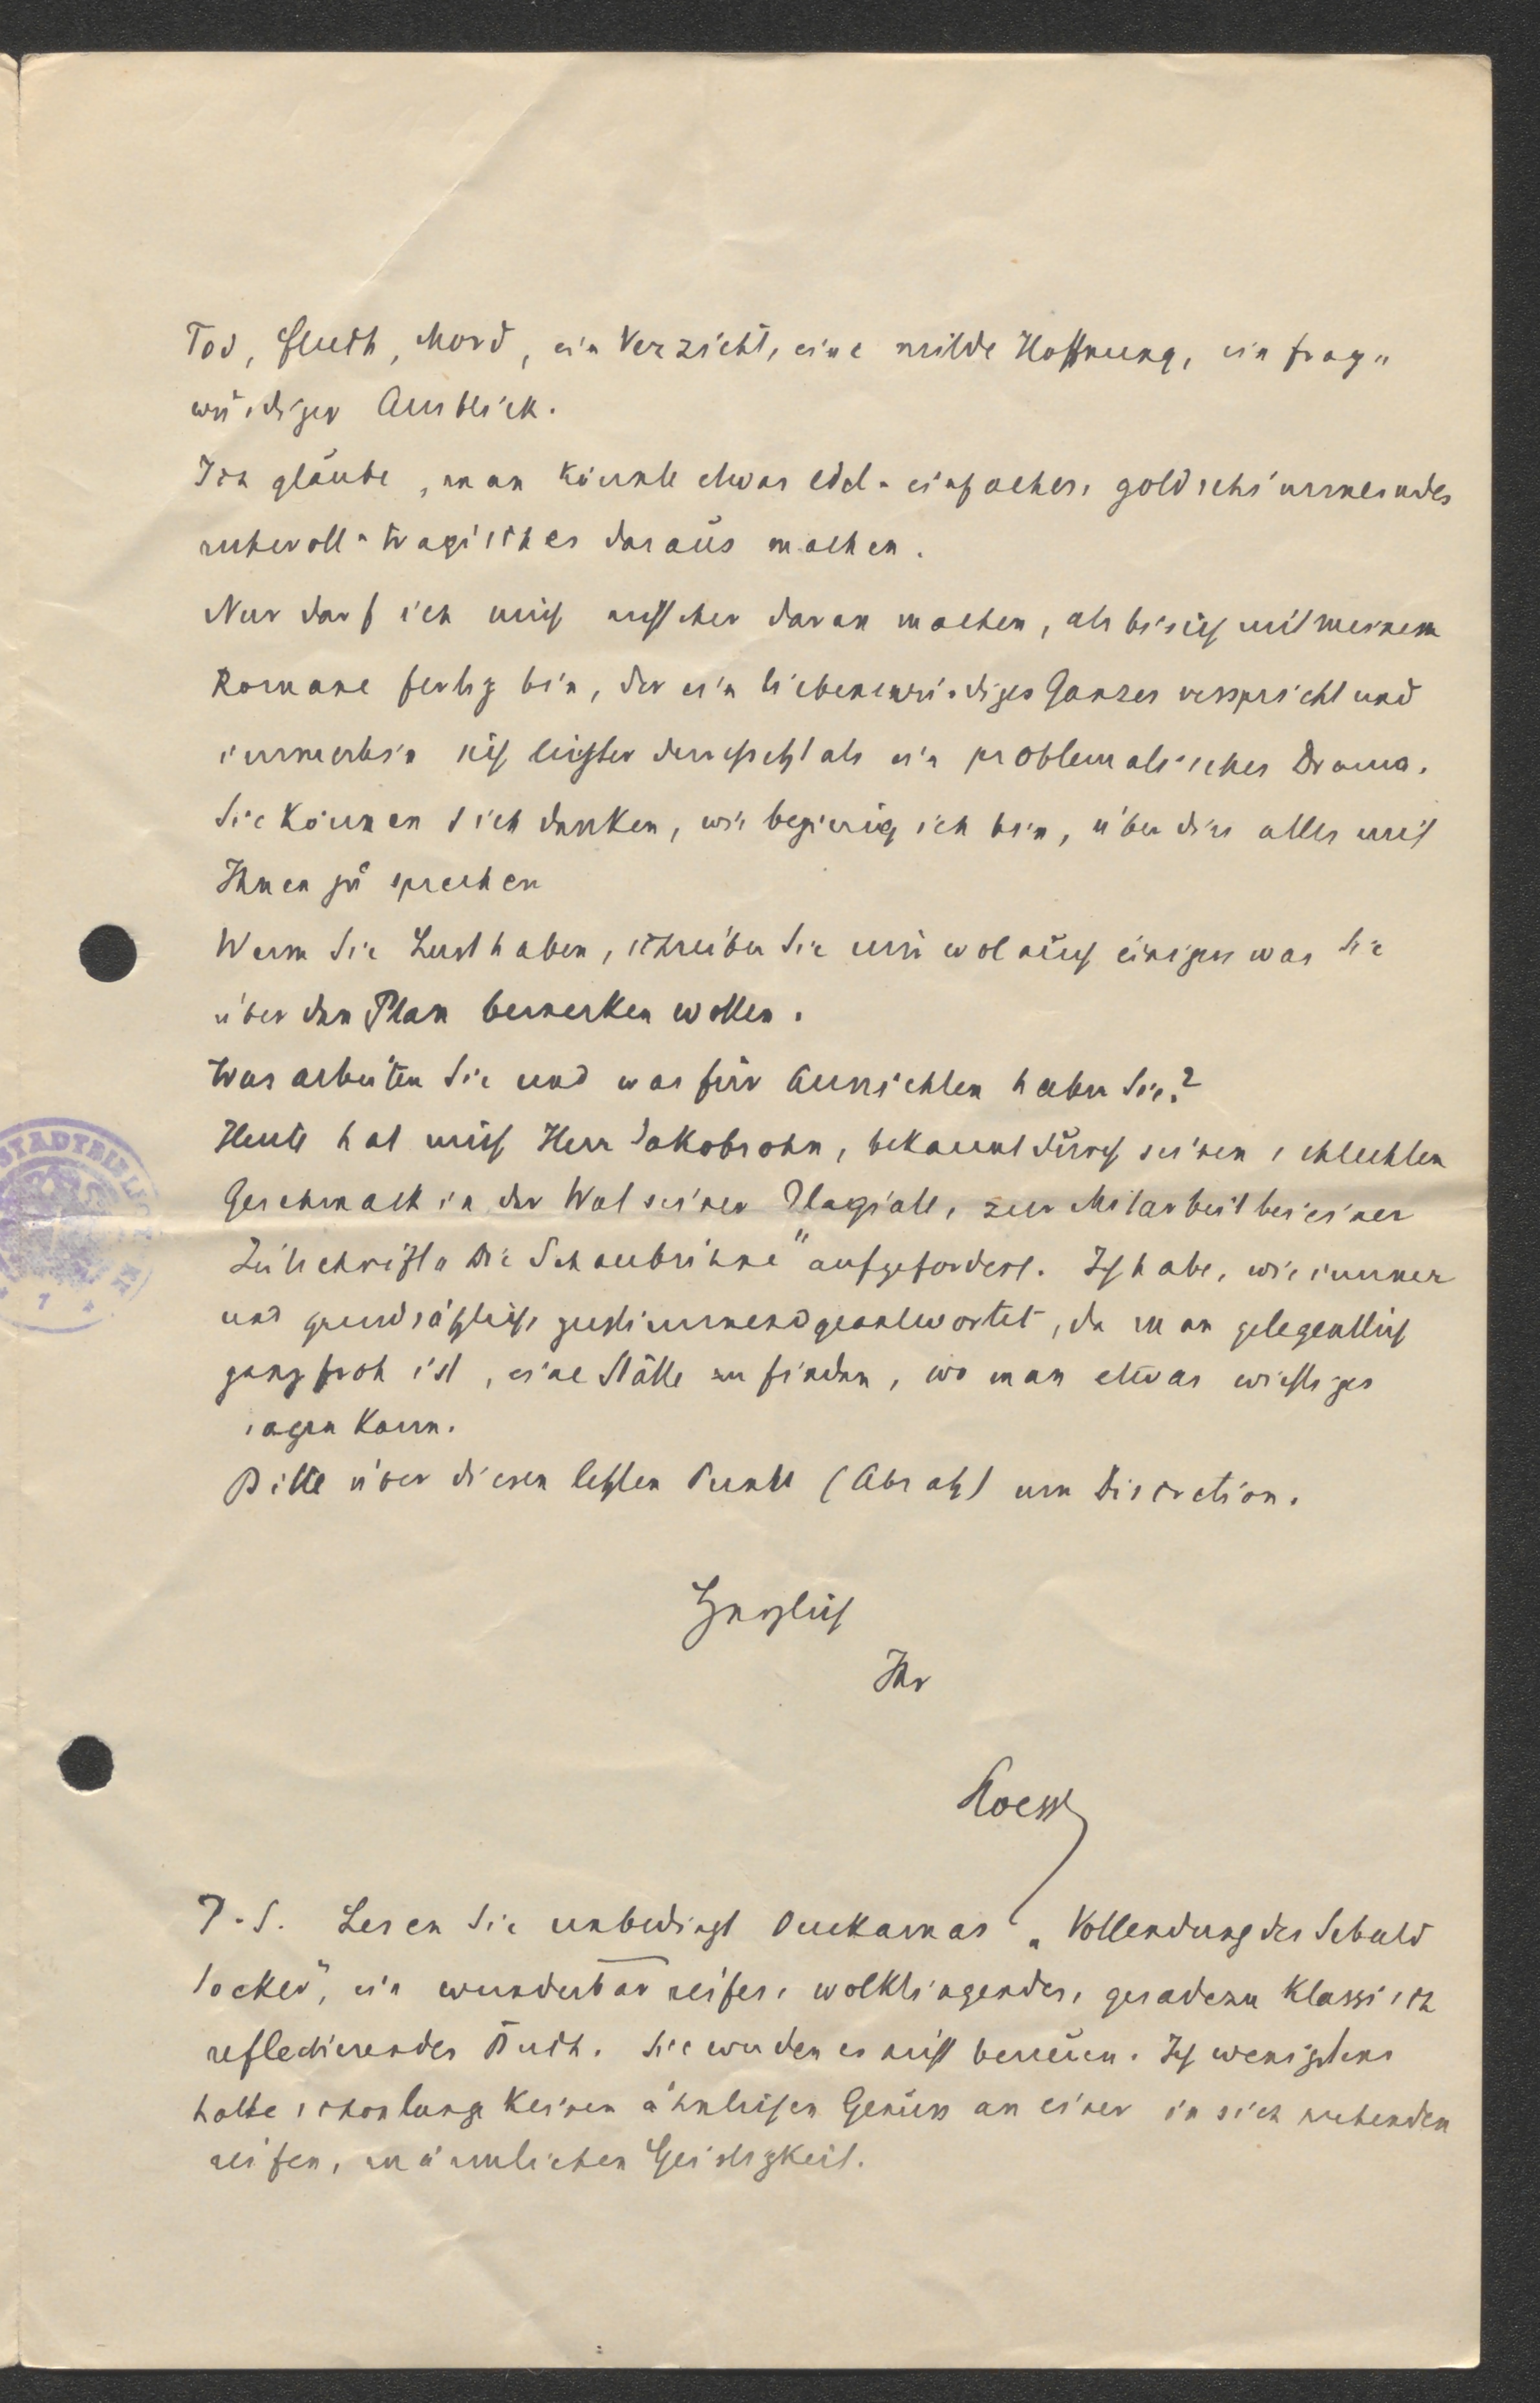 Tod, Fluch, Mord, ein Verzicht, eine milde Hoffnung, ein frag-
würdiger Ausblick.
Ich glaube, man könnte etwas edel-einfaches, goldschimmerndes
ruhevoll-tragisches daraus machen.
Nur darf ich mich nicht eher daran machen, als bis ich mit meinem
Romane fertig bin, der ein liebenswürdiges Ganzes verspricht und
immerhin sich leichter durchsetzt als ein problematisches Drama.
Sie können sich denken, wie begierig ich bin, über dies alles mit
Ihnen zu sprechen
Wenn Sie Lust haben, schreiben Sie mir wol auch einiges was Sie
über den Plan bemerken wollen.
Was arbeiten Sie und was für Aussichten haben Sie?
Heute hat mich Herr Jakobsohn, bekannt durch seinen schlechten
Geschmack in der Wal seiner Plagiate, zur Mitarbeit bei einer
Zeitschrift „Die Schaubühne" aufgefordert. Ich habe, wie immer
und grundsätzlich, zustimmend geantwortet, da man gelegentlich
ganz froh ist, eine Stätte zu finden, wo man etwas wichtiges
sagen kann.
Bitte über diesen letzten Punkt (Absatz) um Discretion.
Herzlich
Ihr
P.S. Lesen Sie unbedingt Ouckamas „Vollendung des Sebald
Socker", ein wunderbar reifes, wolklingendes, geradezu klassisch
reflectierendes Buch. Sie werden es nicht bereuen. Ich wenigstens
hatte schon lange keinen ähnlichen Genuss an einer in sich ruhenden
reifen, männlichen Geistigkeit.
STADTBIBLIO